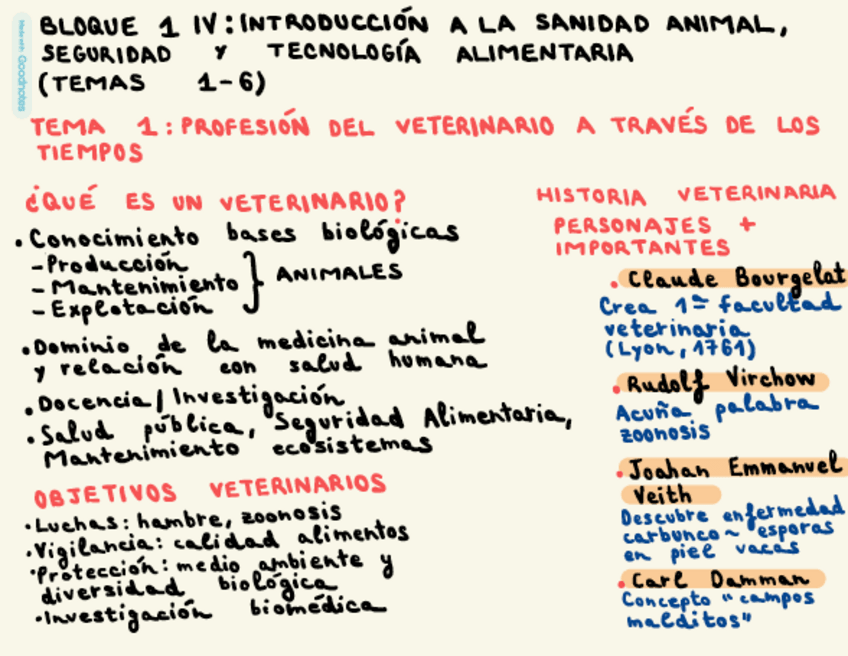 Made with Goodnotes
BLOQUE 1 IV: INTRODUCCIÓN A LA SANIDAD ANIMAL,
SEGURIDAD Y TECNOLOGÍA ALIMENTARIA
(TEMAS 1-6)
TEMA 1: PROFESIÓN DEL VETERINARIO A TRAVÉS DE LOS
TIEMPOS
¿QUÉ ES UN VETERINARIO?
• Conocimiento bases biológicas
- Producción
- Mantenimiento } ANIMALES
- Explotación
• Dominio de la medicina animal
y relación con salud humana
• Docencia / Investigación
• Salud pública, Seguridad Alimentaria,
Mantenimiento ecosistemas
OBJETIVOS VETERINARIOS
• Luchas: hambre, zoonosis
• Vigilancia: calidad alimentos
• Protección: medio ambiente y
diversidad biológica
• Investigación biomédica
HISTORIA VETERINARIA
PERSONAJES +
IMPORTANTES
• Claude Bourgelat
Crea 1ª facultad
veterinaria
(Lyon, 1761)
• Rudolf Virchow
Acuña palabra
zoonosis
• Joahan Emmanuel
Veith
Descubre enfermedad
carbunco ~ esporas
en piel vacas
• Carl Damman
Concepto "campos
malditos"